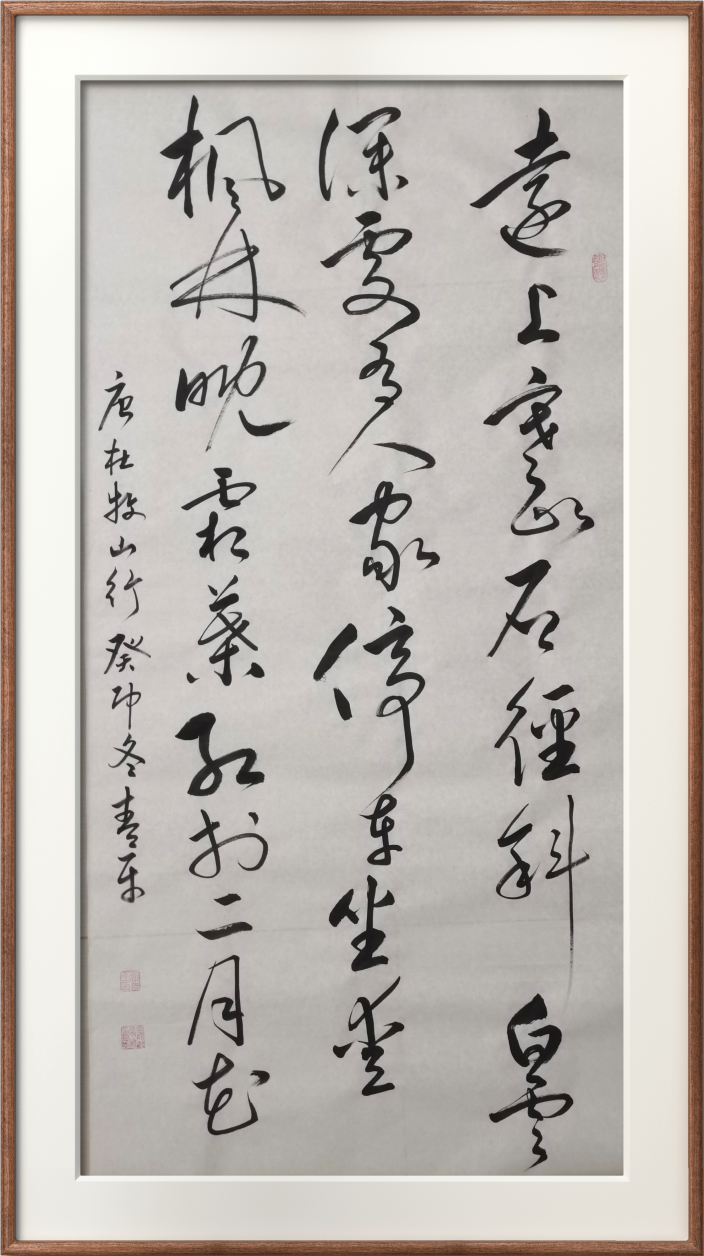 遠上寒山石徑斜白雲
深處有人家停車坐愛
楓林晚霜葉紅於二月花
唐杜牧山行癸卯冬青